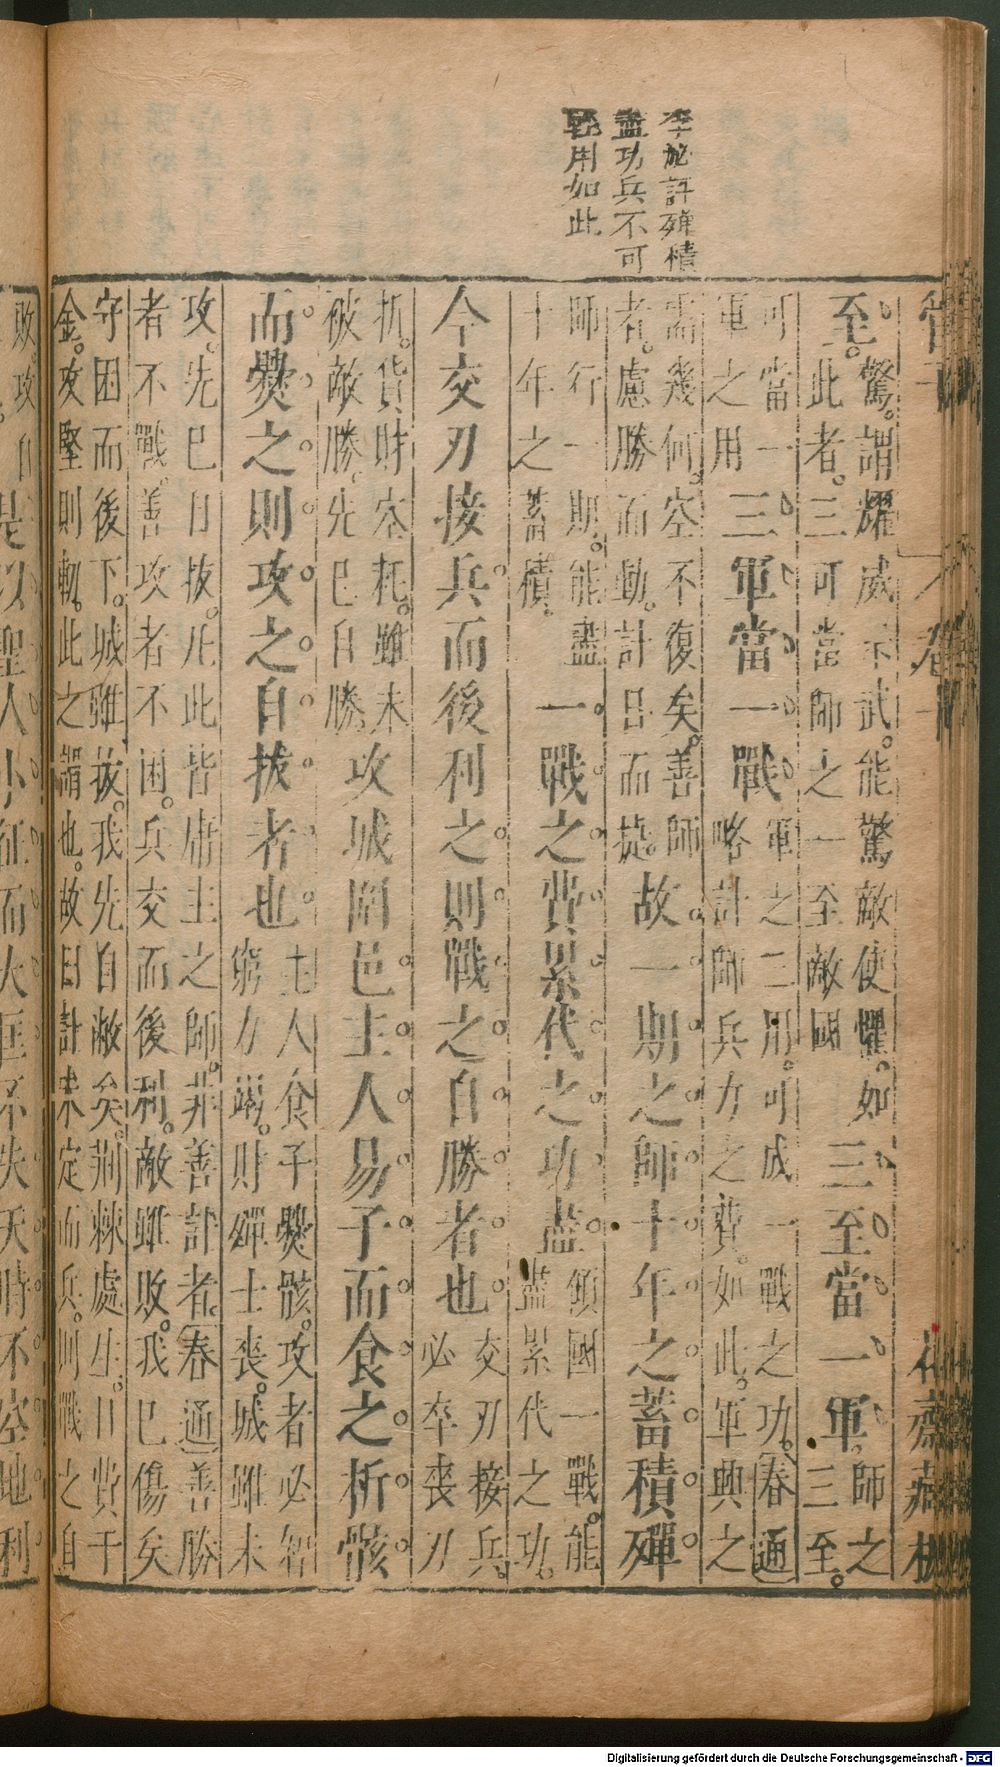 李泌評殫積
盡功兵不可
輕用如此
管子
卷十
花齋藏板
至。驚。謂耀威示武。能驚敵使懼。如
此者。三可當師之一至敵國
三至當一軍師之
三至。
可當一
軍之用
三軍當一戰軍之三用。可成一戰之功。春通
略計師兵力之費。如此。軍興之
需幾何。空不復矣。善師
者。慮勝而動。計日而捷。
故一期之師十年之蓄積殫
師行一期。能盡
十年之蓄積。
一戰之費累代之功盡傾國一戰。能
盡累代之功。
今交刃接兵而後利之則戰之自勝者也交刃接兵。
必卒喪刃
折。貨財空耗。雖未
破敵勝。先已自勝
攻城圍邑主人易子而食之析骸
而爨之則攻之自拔者也主人食子爨骸。攻者必智
窮力竭。財殫士喪。城雖未
攻。先已自拔。凡此皆庸主之師。非善計者。春通善勝
者不戰。善攻者不困。兵交而後利。敵雖敗。我已傷矣
守困而後下。城雖拔。我先自敝矣。荊棘處生。日費千
金。攻堅則軔。此之謂也。故曰計未定而兵。則戰之自
敗。攻自
是以聖人小征而大匡不失天時不空地利
Digitalisierung gefördert durch die Deutsche Forschungsgemeinschaft - DFG